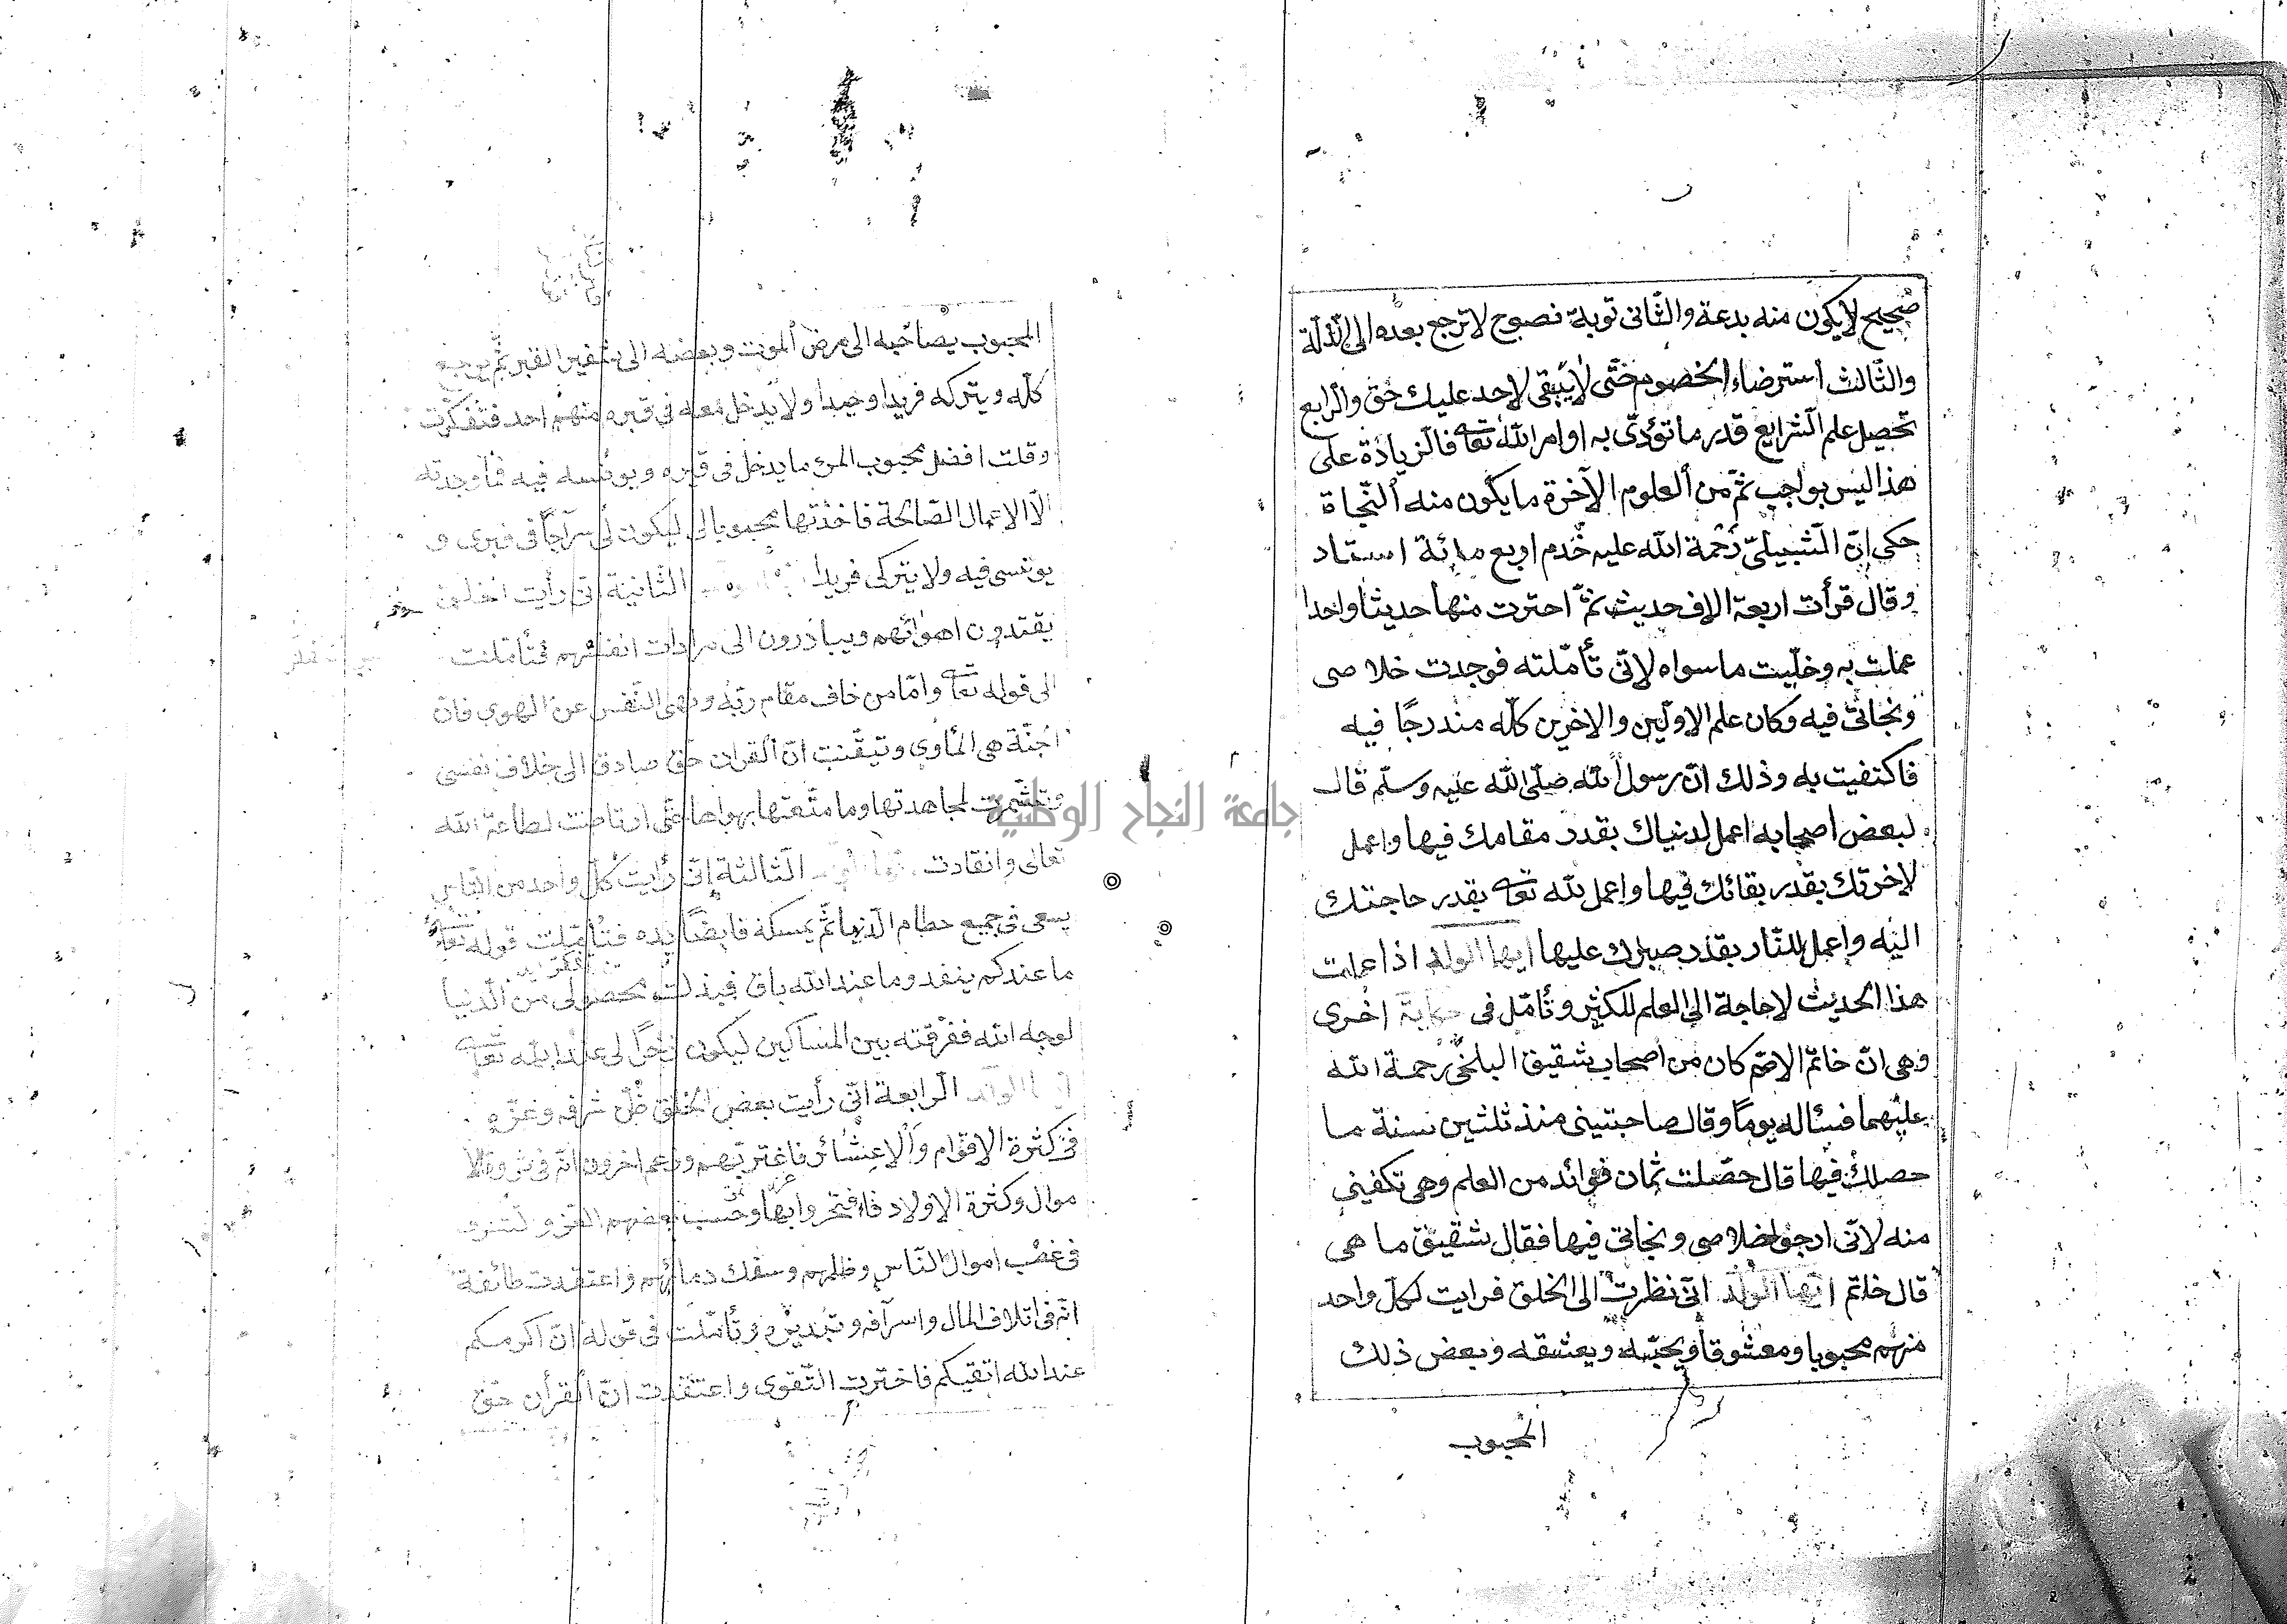 صحيح لا يكون منه بدعة والثاني توبة نصوح لا ترجع بعده الى الذلة
والثالث استرضاء الخصوم حتى لا يبقى لاحد عليك حق والرابع
تحصيل علم الشرايع قدر ما تؤدى به اوامر الله تعا فالزيادة على
هذا ليس بواجب ثم من العلوم الآخرة ما يكون منه النجاة
حكى ان الشبيلى رحمة الله عليه خدم اربع مائة استاد
وقال قرأت اربعة الاف حديث ثم احترت منها حديثا واحدا
عملت به وخليت ما سواه لانى تأملته فوجدت خلاصى
ونجاتى فيه وكان علم الاولين والاخرين كله مندرجا فيه
فاكتفيت به وذلك ان رسول الله صلى الله عليه وسلم قال
لبعض اصحابه اعمل لدنياك بقدر مقامك فيها واعمل
لاخرتك بقدر بقائك فيها واعمل لله تعا بقدر حاجتك
اليه واعمل للنار بقدر صبرك عليها ايها الولد اذا علمت
هذا الحديث لا حاجة الى العلم للكثير وتأمل فى حكاية اخرى
وهى ان خاتم الاصم كان من اصحاب شقيق البلخى رحمة الله
عليهما فسئاله يوما وقال صاحبتينى منذ ثلثين سنة ما
حصلك فيها قال حصلت ثمان فوائد من العلم وهى تكفينى
منه لانى ارجو خلاصى ونجاتى فيها فقال شقيق ما هى
قال خاتم ايها الولد انى نظرت الى الخلق فرايت لكل واحد
منهم محبوبا ومعشوقا ويحبه ويعشقه وبعض ذلك
المحبوب
المحبوب يصاحبه الى مرض الموت وبعضه الى شفير القبر ثم يرجع
كله ويتركه فريدا وحيدا ولا يدخل معه فى قبره منهم احد فتفكرت
وقلت افضل محبوب المرء ما يدخل فى قبره ويونسه فيه فما وجدته
الا الاعمال الصالحة فاخذتها محبوبا لى ليكون لى سراجا فى قبرى و
يونسى فيه ولا يتركى فريدا الثانية انى رأيت الخلق
يقتدون اهوائهم ويبادرون الى مرادات انفسهم فتأملت
الى قوله تعا واما من خاف مقام ربه ونهى النفس عن الهوى فان
الجنة هى المأوى وتيقنت ان القران حق صادق الى خلاف نفسى
وتشمرت لمجاهدتها وما متعتها بهواها حتى ارتاضت لطاعة الله
تعالى وانقادت الثالثة انى رأيت كل واحد من الناس
يسعى فى جميع حطام الدنيا ثم يمسكه قابضا يده فتأملت قوله تعا
ما عندكم ينفد وما عند الله باق فبذلت محصولى من الدنيا
لوجه الله ففرقته بين المساكين ليكون ذخرا لى عند الله تعا
ايها الولد الرابعة انى رأيت بعض الخلق ظن شرفه وعزه
فى كثرة الاقوام والاعشائر فاغتر بهم وزعم اخرون انه فى ثروة الا
موال وكثرة الاولاد فافتخروا بها وحسب بعضهم العز والشرف
فى غصب اموال الناس وظلمهم وسفك دمائهم واعتقدت طائفة
انه فى اتلاف المال واسرافه وتبذيره وتأملت فى قوله ان اكرمكم
عند الله اتقيكم فاخترت التقوى واعتقدت ان القرأن حق
جامعة النجاح الوطنية